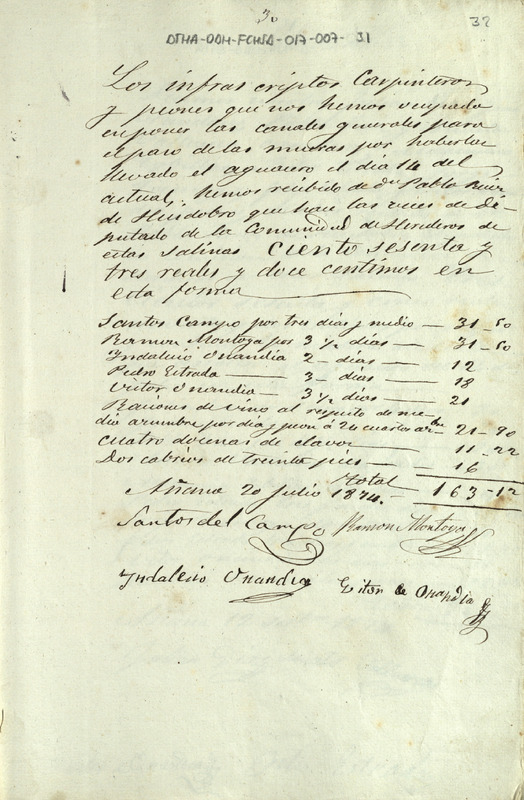 30
32
DTHA-OOH-FCHSA-017-007-31
Los infras criptos Carpinteros
y peones que nos hemos ocupado
en poner las canales generales para
el paso de las mueras por haberlas
llevado el aguacero el dia 14 del
actual, hemos recibido de Dn. Pablo Ruiz
de Huidobro que hace las veces de Di-
putado de la Comunidad de Herederos de
estas Salinas Ciento sesenta y
tres reales y doce centimos en
esta forma
Santos Campo por tres dias y medio — 31-50
Ramon Montoya por 3 1/2 dias — 31-50
Yndalecio Onandia 2 - dias — 12
Pedro Estrada — 3 - dias — 18
Victor Onandia — 3 1/2 dias — 21
Raciones de vino al respeto de me-
dio azumbre por dia y peon á 24 cuartos azbre 21-90
Cuatro docenas de clavos — 11-22
Dos cabrios de treinta pies — 16
total — 163-12
Añana 20 Julio 1874.
Santos del Campo Ramon Montoya
Yndalecio Onandia Bitor de Onandia